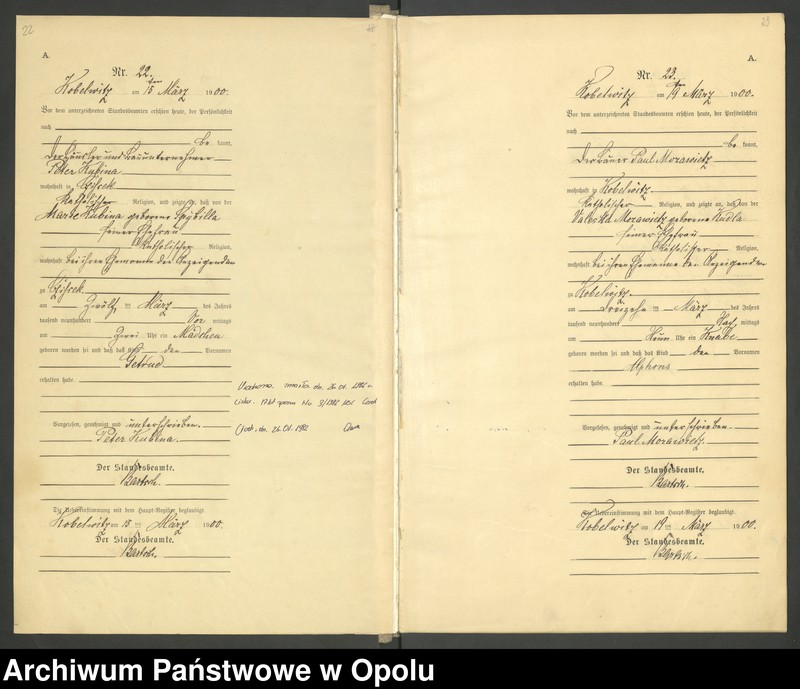 22
A.
Nr. 22.
Kobelwitz am 15ten März 1900.
Vor dem unterzeichneten Standesbeamten erschien heute, der Persönlichkeit
nach
be kannt,
der Häusler und Bauunternehmer
Peter Kubina
wohnhaft in
katholischer Religion, und zeigte an, daß von der
Marie Kubina geborene Spybilla
seiner Ehefrau
katholischer Religion,
wohnhaft bei ihrem Ehemanne dem Anzeigenden
zu
am Zwölf ten März des Jahres
tausend neunhundert Vor mittags
um Zwei Uhr ein Mädchen
geboren worden sei und daß das Kind den Vornamen
Getrud
erhalten habe.
Vorgelesen, genehmigt und unterschrieben.
Peter Kubina.
Der Standesbeamte.
Bartsch.
Die Uebereinstimmung mit dem Haupt-Register beglaubigt.
Kobelwitz am 15 ten März 1900.
Der Standesbeamte.
Bartsch.
zmarła dn. 26.01.1982 r.
Nr 9/1982
dn. 26.01.1982
23
A.
Nr. 23.
Kobelwitz am 19ten März 1900.
Vor dem unterzeichneten Standesbeamten erschien heute, der Persönlichkeit
nach
be kannt,
der Bauer Paul Morawietz
wohnhaft zu Kobelwitz
katholischer Religion, und zeigte an, daß von der
Valeska Morawietz geborene Kudla
seiner Ehefrau
katholischer Religion,
wohnhaft bei ihrem Ehemanne dem Anzeigenden
zu Kobelwitz.
am Dreizehn ten März des Jahres
tausend neunhundert Nach mittags
um Neun Uhr ein Knabe
geboren worden sei und daß das Kind den Vornamen
Alphons
erhalten habe.
Vorgelesen, genehmigt und unterschrieben.
Paul Morawietz.
Der Standesbeamte.
Bartsch.
Die Uebereinstimmung mit dem Haupt-Register beglaubigt.
Kobelwitz am 19 ten März 1900.
Der Standesbeamte.
Bartsch.
Archiwum Państwowe w Opolu